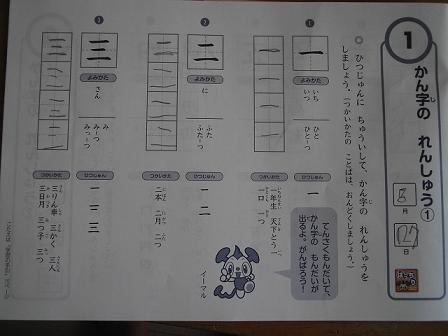 1
かん字の れんしゅう①
月
日
◎ ひつじゅんに ちゅういして、かん字の れんしゅうを
しましょう。（つかいかたの ことばは、おんどくしましょう。）
てんさくもんだいで、
かん字の もんだいが
出るよ。がんばろう！
イーマル
1
一
よみかた
いち
いつ
ひと
ひと-つ
ひつじゅん
一
つかいかた
一年生 天下とう一
一口 一つ
2
二
よみかた
に
ふた
ふた-つ
ひつじゅん
一 二
つかいかた
二本 二月 二つ
3
三
よみかた
さん
み
みっ-つ
ひつじゅん
一 二 三
つかいかた
三りん車 三かく 三人
三日月 三つ子 三つ